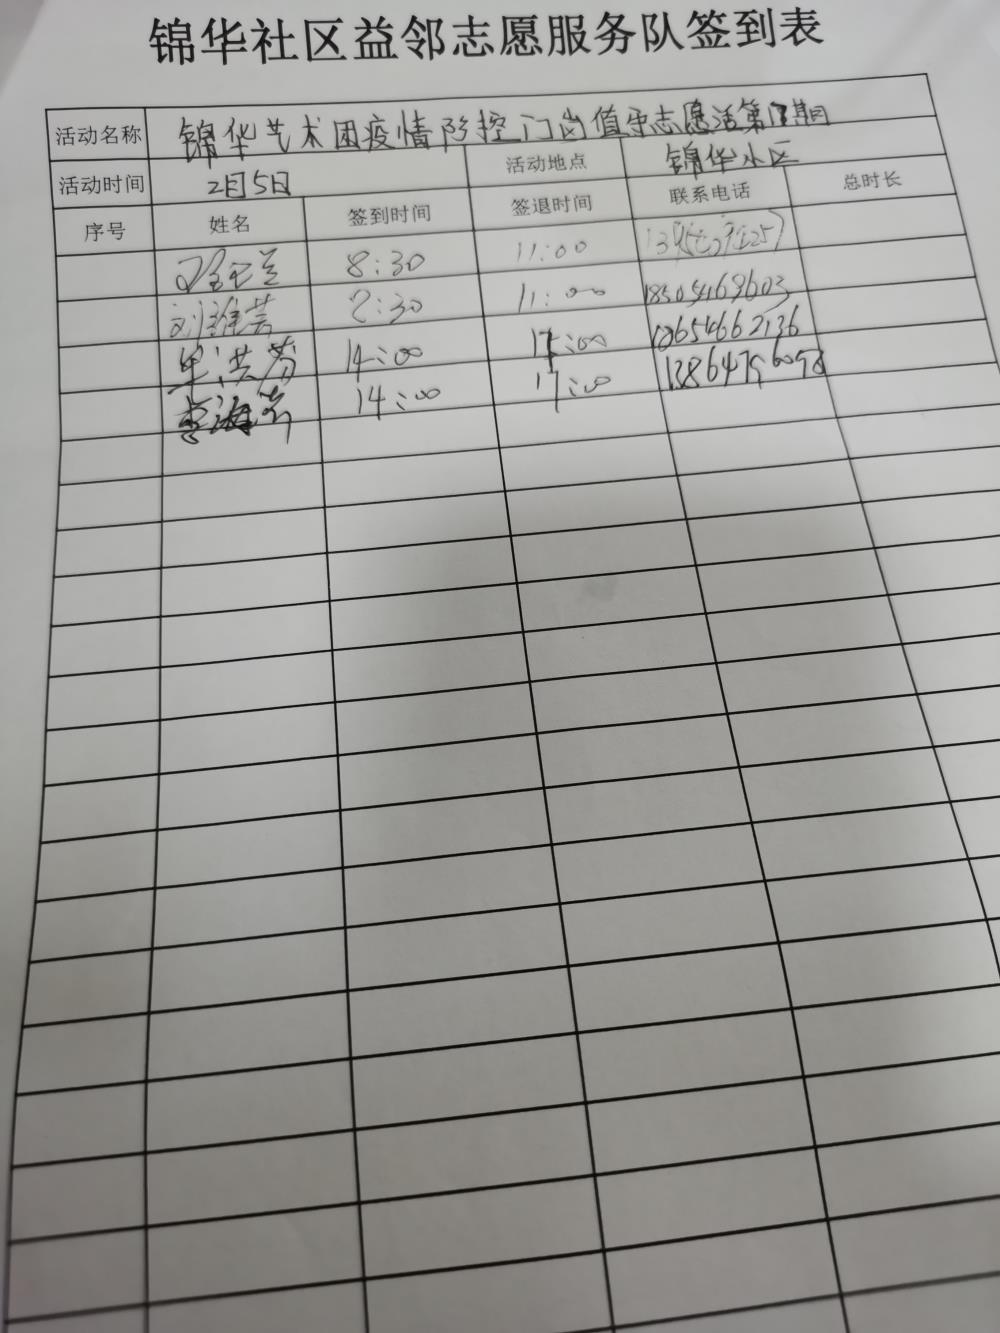 锦华社区益邻志愿服务队签到表
活动名称 锦华艺术团疫情防控门岗值守志愿活第 期
活动时间 2月5日 活动地点 锦华小区
序号 姓名 签到时间 签退时间 联系电话 总时长
8:30 11:00
刘 8:30 11:00 18505469603
牟洪芬 14:00 17:00 18654662136
14:00 17:00